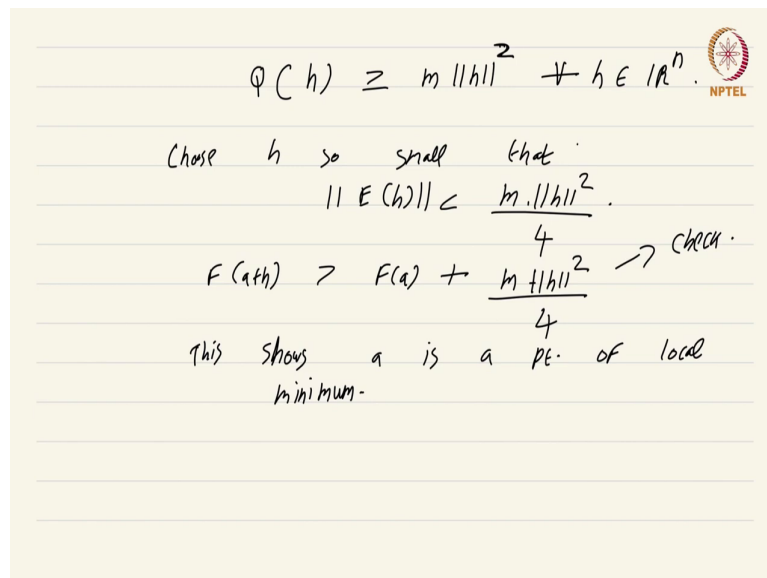 Q(h) ≥ m ||h||² ∀ h ∈ ℝⁿ.
NPTEL
Chose h so small that
||E(h)|| < m.||h||² / 4.
F(a+h) > F(a) + m||h||² / 4 → check.
This shows a is a pt. of local
minimum.